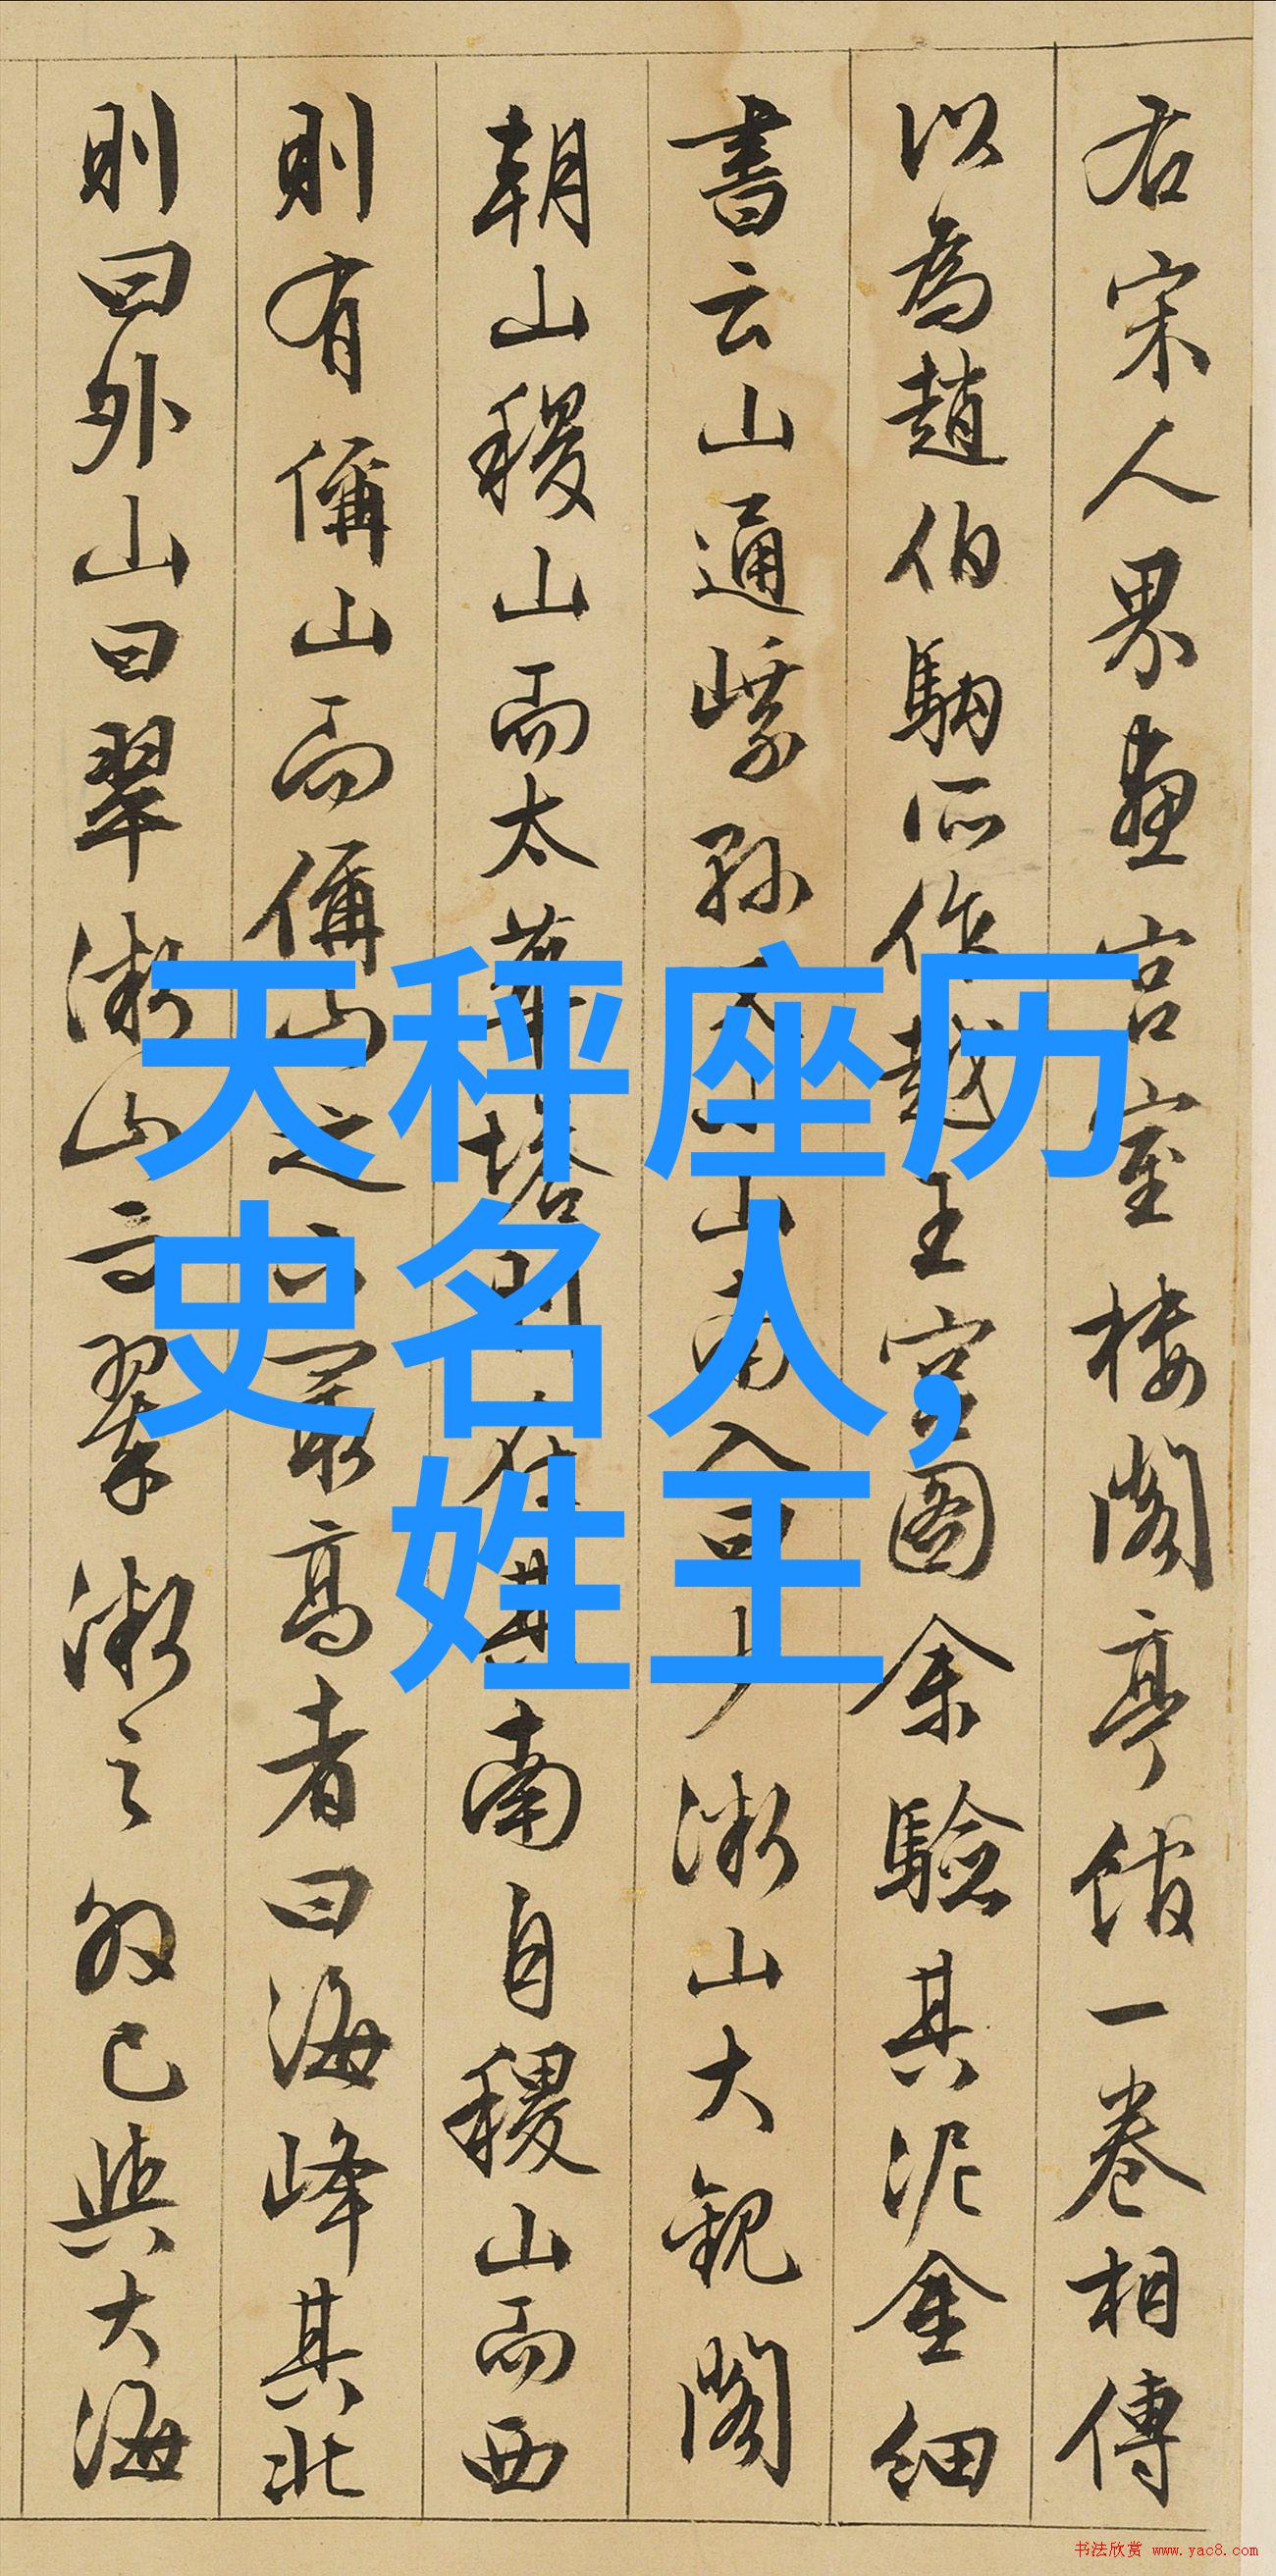 右宋人界畫宮室樓閣亭館一卷相傳
以為趙伯駒所作越王宮圖余驗其泥金細
書云山通嶧孫 山南入 少 山大觀閣
朝山稷山而太華 在其南自稷山而西
則有偁山而偁山之 最高者曰海峰其北
則曰外山曰翠 山 翠 之 已與大海
天秤座历
史名人,
姓王
书法欣赏 www.yac8.com